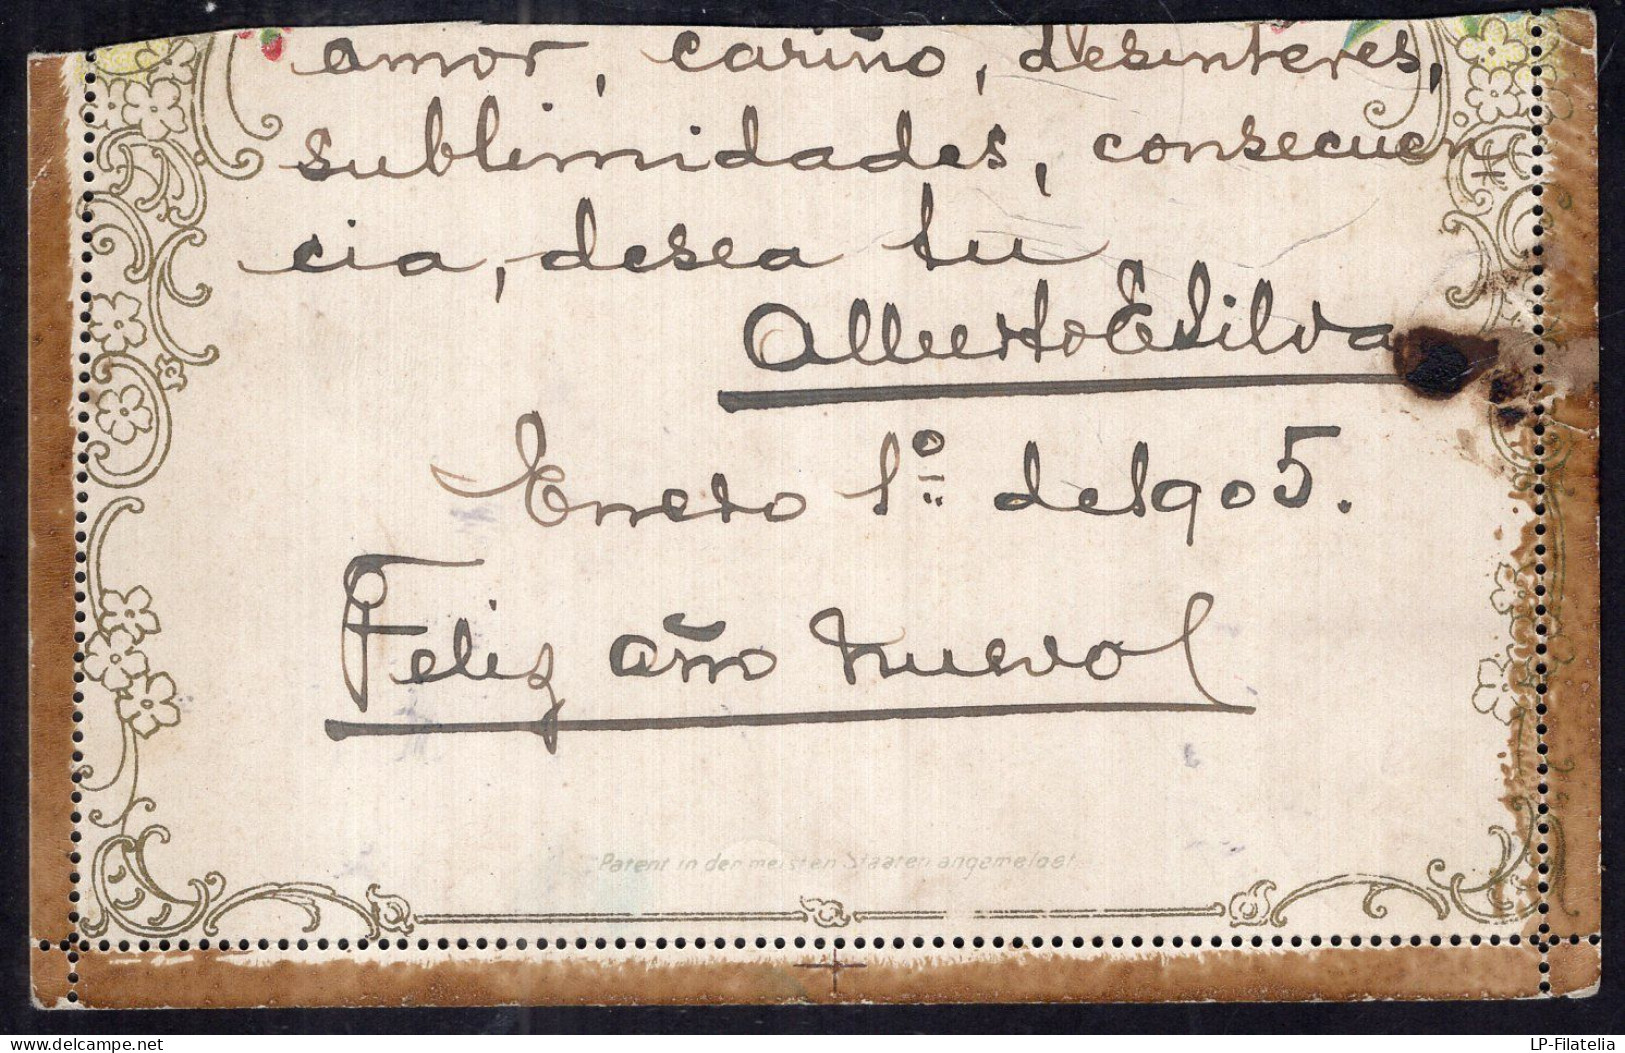 amor, cariño, desinteres,
sublimidades, consecuen
cia, desea tu
Alberto E Silva
Enero 1º de 1905.
Feliz año nuevo!
Patent in den meisten Staaten angemeldet
delcampe.net
LP-Filatelia